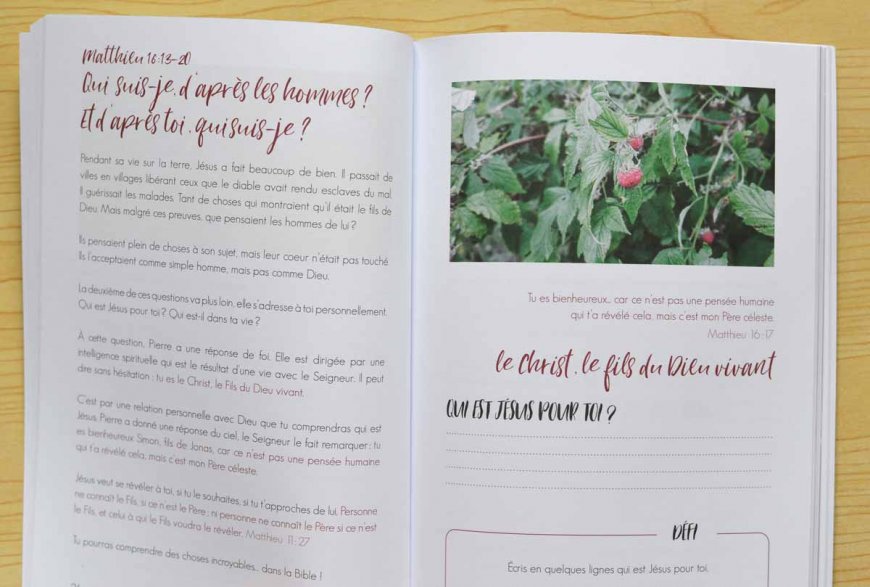 Matthieu 16:13-20
Qui suis-je, d'après les hommes ?
Et d'après toi, qui suis-je ?
Pendant sa vie sur la terre, Jésus a fait beaucoup de bien. Il passait de
villes en villages libérant ceux que le diable avait rendu esclaves du mal.
Il guérissait les malades. Tant de choses qui montraient qu'il était le fils de
Dieu. Mais malgré ces preuves, que pensaient les hommes de lui ?
Ils pensaient plein de choses à son sujet, mais leur coeur n'était pas touché
Ils l'acceptaient comme simple homme, mais pas comme Dieu.
La deuxième de ces questions va plus loin, elle s'adresse à toi personnellement.
Qui est Jésus pour toi ? Qui est-il dans ta vie ?
À cette question, Pierre a une réponse de foi. Elle est dirigée par une
intelligence spirituelle qui est le résultat d'une vie avec le Seigneur. Il peut
dire sans hésitation : tu es le Christ, le Fils du Dieu vivant.
C'est par une relation personnelle avec Dieu que tu comprendras qui est
Jésus. Pierre a donné une réponse du ciel, le Seigneur le fait remarquer : tu
es bienheureux Simon, fils de Jonas, car ce n'est pas une pensée humaine
qui t'a révélé cela, mais c'est mon Père céleste.
Jésus veut se révéler à toi, si tu le souhaites, si tu t'approches de lui. Personne
ne connaît le Fils, si ce n'est le Père ; ni personne ne connaît le Père si ce n'est
le Fils, et celui à qui le Fils voudra le révéler. Matthieu 11 : 27
Tu pourras comprendre des choses incroyables... dans la Bible !
Tu es bienheureux... car ce n'est pas une pensée humaine
qui t'a révélé cela, mais c'est mon Père céleste.
Matthieu 16 : 17
le Christ, le fils du Dieu vivant
QUI EST JÉSUS POUR TOI ?
DÉFI
Écris en quelques lignes qui est Jésus pour toi.